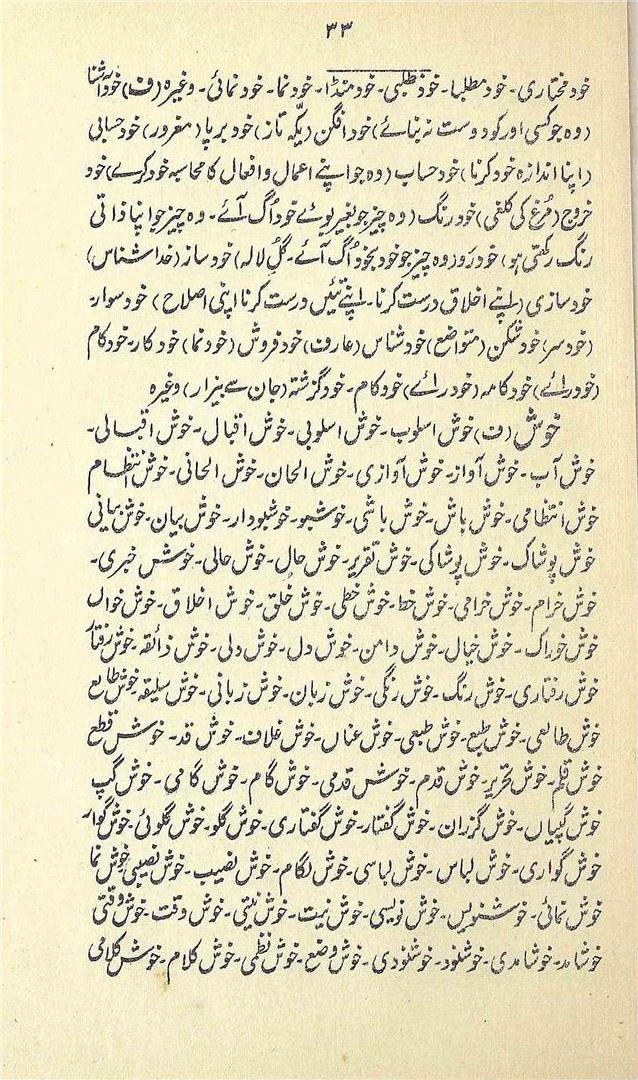 ۳۳
خود مختاری۔ خود مطلبا۔ خود طلبی۔ خود منڈا۔ خود نما۔ خود نمائی۔ وغیرہ (ف) خود آشنا
(وہ جو کسی اور کو دوست نہ بنائے) خود افگن (یکّہ تاز) خود برپا (مغرور) خود حسابی
(اپنا اندازہ خود کرنا) خود حساب (وہ جو اپنے اعمال و افعال کا محاسبہ خود کرے) خود
خروج (مُرغ کی کلغی) خود رنگ (وہ چیز جو بغیر بوئے خود اُگ آئے۔ وہ چیز جو اپنا ذاتی
رنگ رکھتی ہو) خود رَو (وہ چیز جو خود بخود اُگ آئے۔ گُلِ لالہ) خود ساز (خدا شناس)
خود سازی (اپنے اخلاق درست کرنا۔ اپنے تئیں درست کرنا اپنی اصلاح) خود سوار
(خود سر) خود شکن (متواضع) خود شناس (عارف) خود فروش (خود نما) خود کار۔ خود کام
(خود رائے) خود کامہ (خود رائے) خود کام۔ خود گزشتہ (جان سے بیزار) وغیرہ
خوش (ف) خوش اسلوب۔ خوش اسلوبی۔ خوش اقبال۔ خوش اقبالی۔
خوش آب۔ خوش آواز۔ خوش آوازی۔ خوش الحان۔ خوش الحانی۔ خوش انتظام
خوش انتظامی۔ خوش باش۔ خوش باشی۔ خوشبو۔ خوشبودار۔ خوش بیان۔ خوش بیانی
خوش پوشاک۔ خوش پوشاکی۔ خوش تقریر۔ خوش حال۔ خوش حالی۔ خوش خبری۔
خوش خرام۔ خوش خرامی۔ خوش خط۔ خوش خطی۔ خوش خُلق۔ خوش اخلاق۔ خوش خواں
خوش خوراک۔ خوش خیال۔ خوش دامن۔ خوش دل۔ خوش دلی۔ خوش ذائقہ۔ خوش رفتار
خوش رفتاری۔ خوش رنگ۔ خوش رنگی۔ خوش زبان۔ خوش زبانی۔ خوش سلیقہ۔ خوش طالع
خوش طالعی۔ خوش طبع۔ خوش طبعی۔ خوش عناں۔ خوش غلاف۔ خوش قد۔ خوش قطع
خوش قلم۔ خوش تحریر۔ خوش قدم۔ خوش قدمی۔ خوش گام۔ خوش گامی۔ خوش گپ
خوش گپیاں۔ خوش گزران۔ خوش گفتار۔ خوش گفتاری۔ خوش گلو۔ خوش گلوئی۔ خوش گوار
خوش گواری۔ خوش لباس۔ خوش لباسی۔ خوش لگام۔ خوش نصیب۔ خوش نصیبی۔ خوش نما
خوش نمائی۔ خوشنویس۔ خوش نویسی۔ خوش نیت۔ خوش نیتی۔ خوش وقت۔ خوش وقتی
خوشامد۔ خوشامدی۔ خوشنود۔ خوشنودی۔ خوش وضع۔ خوش نظمی۔ خوش کلام۔ خوش کلامی